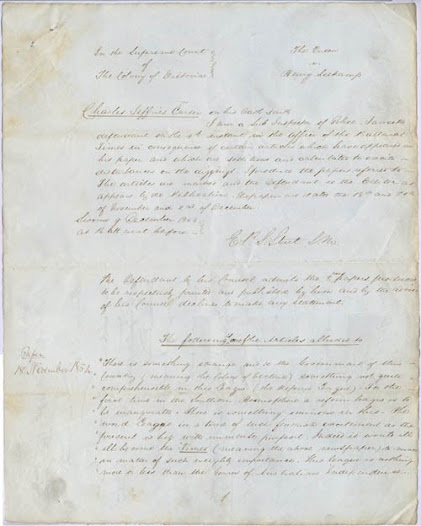 In the Supreme Court
of
The Colony of Victoria
The Queen
Henry Seekamp
Charles Jeffries Carter on his oath saith
I am a Sub Inspector of Police. I arrested
defendant on the 4th instant in the Office of the Ballarat
Times in consequence of certain articles which have appeared in
his paper and which are seditious and calculated to
disturbances on the diggings. I produce the papers referred to
The articles are marked and the Defendant is the
appears by the Publication. The papers are dated the 18th and
of November and 2nd of December
Sworn 9 December 1854
at Ballaarat before
The Defendant by his Counsel admits the
to be respectively printed and published by him and by the advice
of his Counsel declines to make any statement.
The following are the Articles alluded to
Paper
18 November 1854
There is something strange and to the Government of this
Country (meaning the Colony of Victoria) something not quite
comprehensible in this League (the Reform League). For the
first time in the Southern Hemisphere a reform league is to
be inaugurated. There is something ominous in this. The
word League in a time of such feverish excitement as the
present is big with immense purport. Indeed it would
ill become the Times (meaning the above newspaper) to
in matter of such weighty importance. This league is nothing
more or less than the germ of Australian Independence